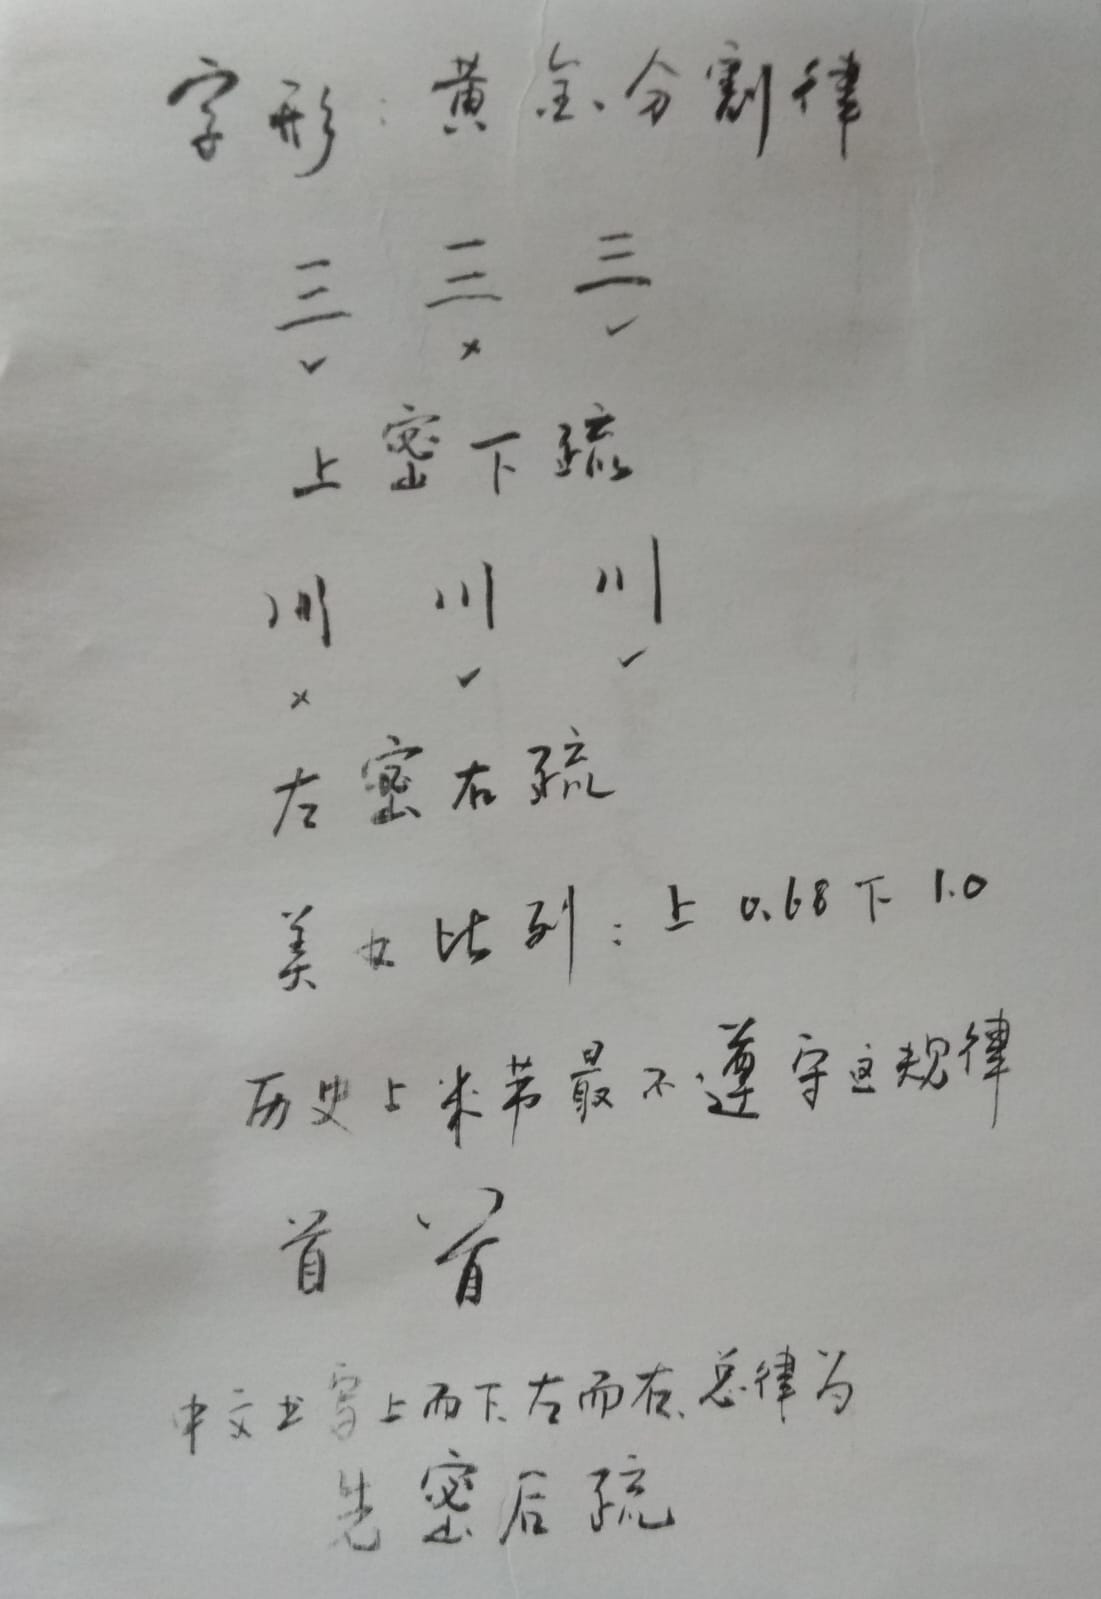 字形：黄金分割律
三 三 三
✓ × ✓
上密下疏
川 川 川
× ✓ ✓
左密右疏
美女比列：上0.68下1.0
历史上米芾最不遵守这规律
首 首
中文书写上而下、左而右、总律为
先密后疏